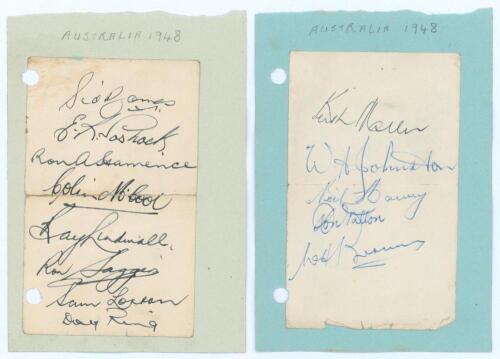 AUSTRALIA 1948
Sid Barnes
E. R. Toshack
Ron A Hamence
Colin McCool
Ray Lindwall.
Ron Saggers
Sam Loxton
Doug Ring
AUSTRALIA 1948
Keith Miller
W A Johnston
Neil Harvey
Don Tallon